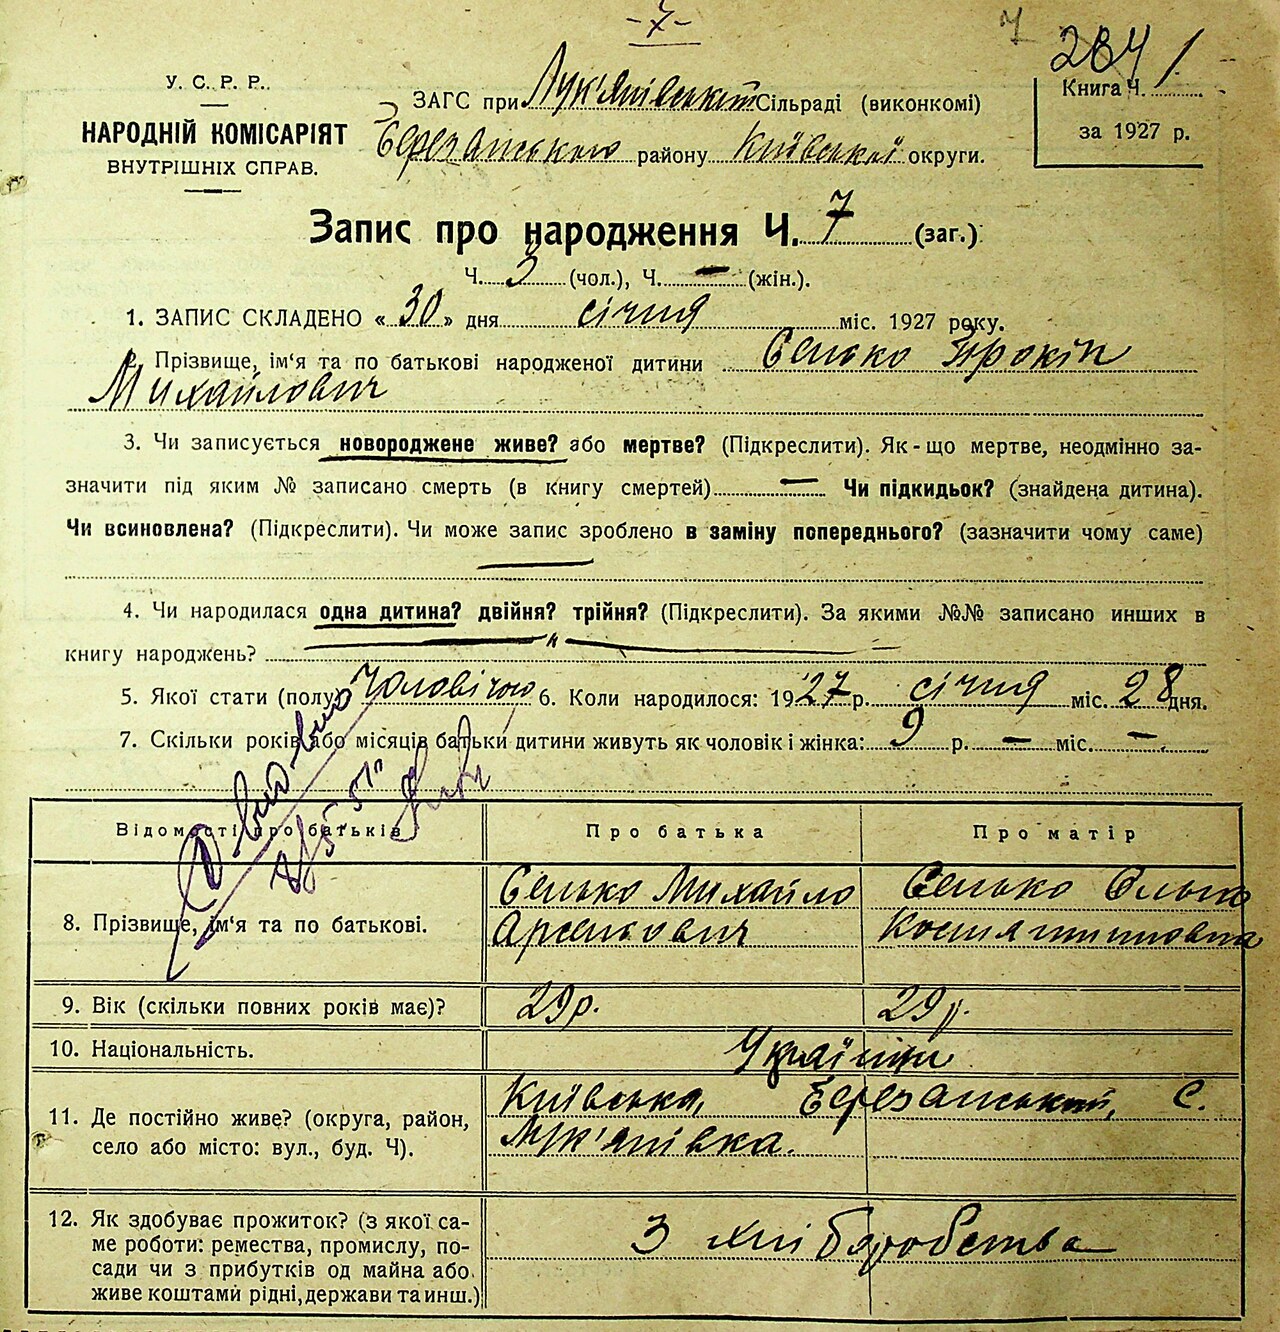 -7-
7
284 /
У. С. Р. Р.
НАРОДНІЙ КОМІСАРІЯТ
ВНУТРІШНІХ СПРАВ.
ЗАГС при Лук'янівській Сільраді (виконкомі)
Березанського району Київської округи.
Книга Ч.
за 1927 р.
Запис про народження Ч. 7 (заг.)
Ч. 3 (чол.), Ч. — (жін.).
1. ЗАПИС СКЛАДЕНО « 30 » дня січня міс. 1927 року.
2. Прізвище, ім‘я та по батькові народженої дитини Сенько Прокіп
Михайлович
3. Чи записується новороджене живе? або мертве? (Підкреслити). Як-що мертве, неодмінно за-
значити під яким № записано смерть (в книгу смертей) — Чи підкидьок? (знайдена дитина).
Чи всиновлена? (Підкреслити). Чи може запис зроблено в заміну попереднього? (зазначити чому саме)
—
4. Чи народилася одна дитина? двійня? трійня? (Підкреслити). За якими №№ записано инших в
книгу народжень?
5. Якої стати (полу) Чоловічою 6. Коли народилося: 1927 р. січня міс. 28 дня.
7. Скільки років або місяців батьки дитини живуть як чоловік і жінка: 9 р. — міс. —
Відомості про батьків
Про батька
Про матір
8. Прізвище, ім‘я та по батькові.
Сенько Михайло
Арсенович
Сенько Ольга
Костянтиновна
9. Вік (скільки повних років має)?
29 р.
29 р.
10. Національність.
Українці
11. Де постійно живе? (округа, район,
село або місто: вул., буд. Ч).
Київська, Березанський, С.
Лук'янівка.
12. Як здобуває прожиток? (з якої са-
ме роботи: ремества, промислу, по-
сади чи з прибутків од майна або
живе коштами рідні, держави та инш.)
З хліборобства